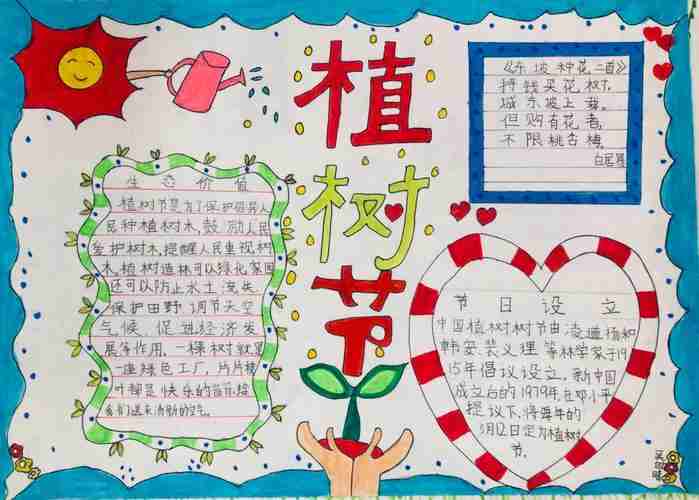 植
树
节
《东坡种花二首》
持钱买花树，
城东坡上栽。
但购有花者，
不限桃杏梅。
白居易
生态价值
植树节是为了保护
民种植树木，鼓励人民
爱护树木，提醒人民重视树
木，植树造林可以绿化家园
还可以防止水土流失，
保护田野，调节天空
气候、促进经济发
展等作用。一棵树就是
一座绿色工厂，片片
叶都是快乐的音符给
我们送来清新的空气。
节日设立
中国植树树节由凌道扬和
韩安、裴义理等林学家于19
15年倡议设立，新中国
成立台的1979年，在邓小平
提议下，将要年的
3月12日定为植树
节。